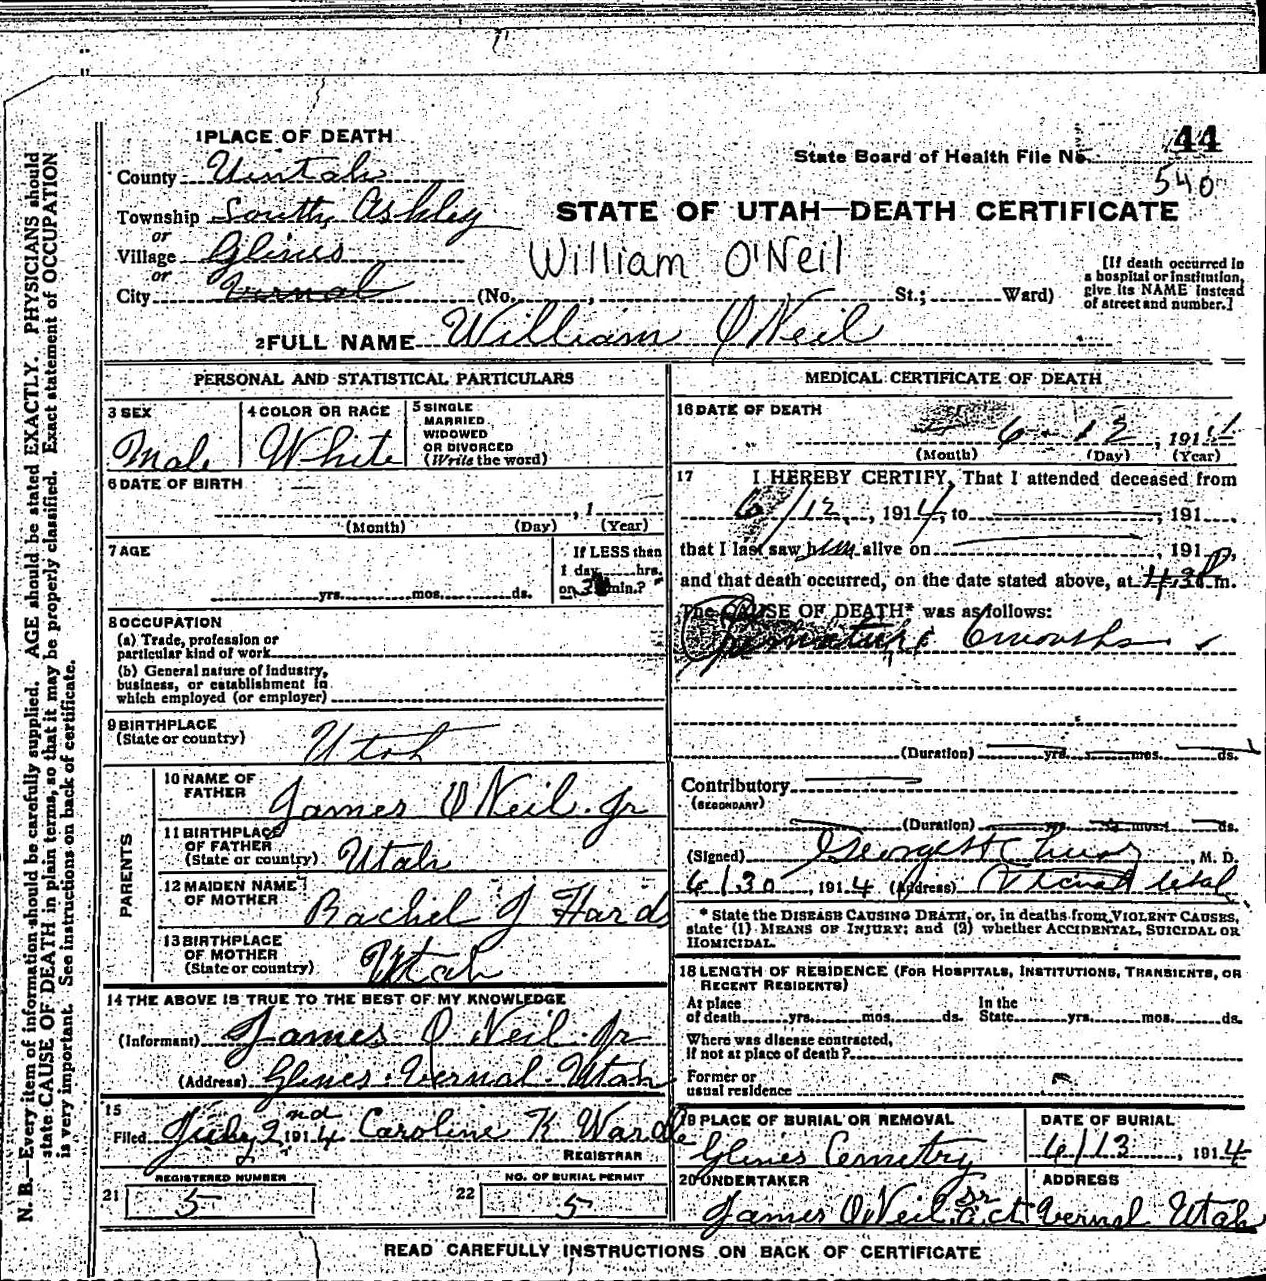 1 PLACE OF DEATH
44
State Board of Health File No.
540
County Uintah
Township South Ashley
or
Village Glines
or
City Vernal (No. , St.; Ward)
STATE OF UTAH—DEATH CERTIFICATE
William O'Neil
[If death occurred in
a hospital or institution,
give its NAME instead
of street and number.]
2 FULL NAME William O'Neil
PERSONAL AND STATISTICAL PARTICULARS
3 SEX
Male
4 COLOR OR RACE
White
5 SINGLE
MARRIED
WIDOWED
OR DIVORCED
(Write the word)
6 DATE OF BIRTH
, 1
(Month) (Day) (Year)
7 AGE
yrs. mos. ds.
If LESS than
1 day hrs.
or min.?
8 OCCUPATION
(a) Trade, profession or
particular kind of work
(b) General nature of industry,
business, or establishment in
which employed (or employer)
9 BIRTHPLACE
(State or country)
Utah
PARENTS
10 NAME OF
FATHER
James O'Neil Jr
11 BIRTHPLACE
OF FATHER
(State or country) Utah
12 MAIDEN NAME
OF MOTHER
Rachel J Hard
13 BIRTHPLACE
OF MOTHER
(State or country) Utah
14 THE ABOVE IS TRUE TO THE BEST OF MY KNOWLEDGE
(Informant) James O'Neil Jr
(Address) Glines Vernal Utah
15
Filed July 2nd 1914 Caroline K Wardle
REGISTRAR
REGISTERED NUMBER
21 5
NO. OF BURIAL PERMIT
22 5
MEDICAL CERTIFICATE OF DEATH
16 DATE OF DEATH
6 - 12, 191
(Month) (Day) (Year)
17 I HEREBY CERTIFY, That I attended deceased from
6/12, 1914, to , 191 ,
that I last saw him alive on , 191 ,
and that death occurred, on the date stated above, at 4.30 P m.
The CAUSE OF DEATH* was as follows:
6 months
(Duration) yrs. mos. ds.
Contributory
(SECONDARY)
(Duration) yrs. mos. ds.
(Signed) George H , M. D.
6/30, 1914 (Address) Vernal Utah
* State the DISEASE CAUSING DEATH, or, in deaths from VIOLENT CAUSES,
state (1) MEANS OF INJURY; and (2) whether ACCIDENTAL, SUICIDAL OR
HOMICIDAL.
18 LENGTH OF RESIDENCE (FOR HOSPITALS, INSTITUTIONS, TRANSIENTS, OR
RECENT RESIDENTS)
At place
of death yrs. mos. ds.
In the
State yrs. mos. ds.
Where was disease contracted,
if not at place of death?
Former or
usual residence
19 PLACE OF BURIAL OR REMOVAL
Glines Cemetry
DATE OF BURIAL
6/13, 1914
20 UNDERTAKER
James O'Neil Sr act
ADDRESS
Vernal Utah
READ CAREFULLY INSTRUCTIONS ON BACK OF CERTIFICATE
N. B.—Every item of information should be carefully supplied. AGE should be stated EXACTLY. PHYSICIANS should
state CAUSE OF DEATH in plain terms, so that it may be properly classified. Exact statement of OCCUPATION
is very important. See instructions on back of certificate.